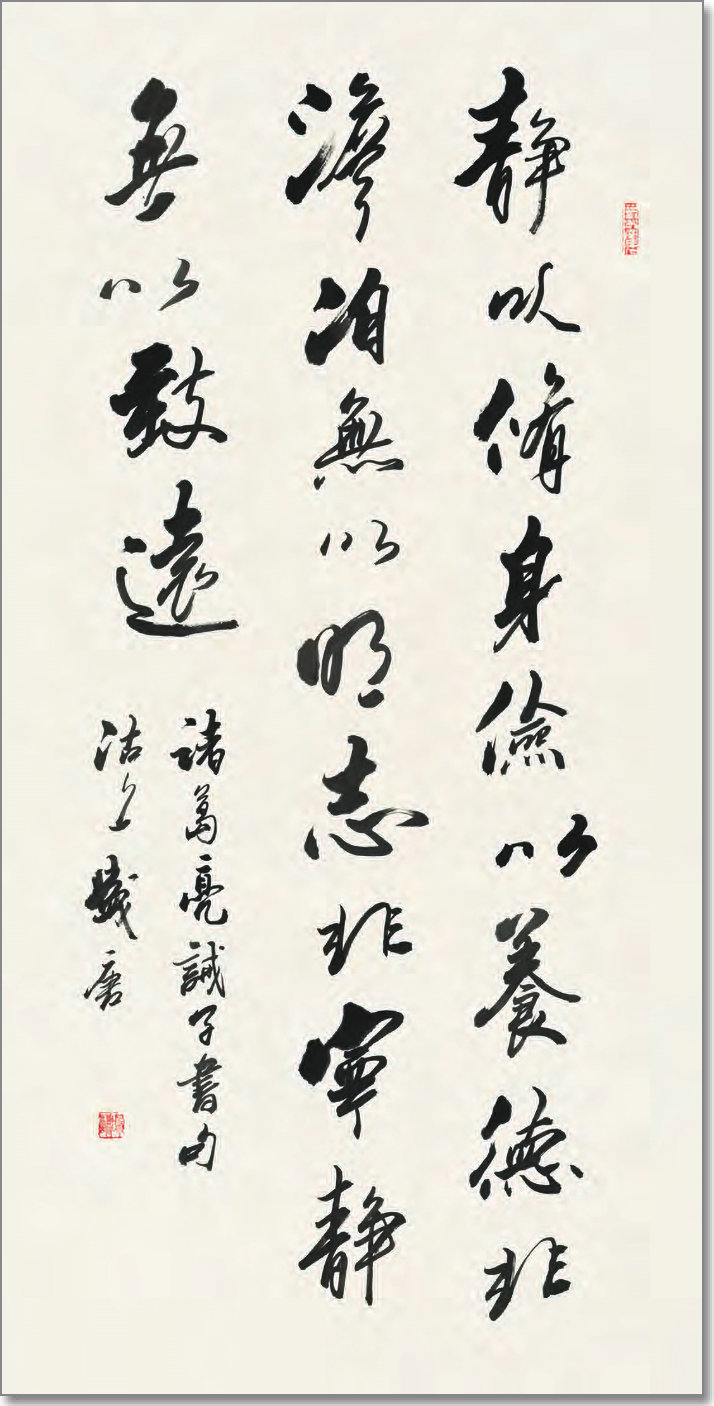 静以脩身儉以養德非
澹泊無以明志非寧靜
無以致遠
諸葛亮誡子書句
沽上歲唐